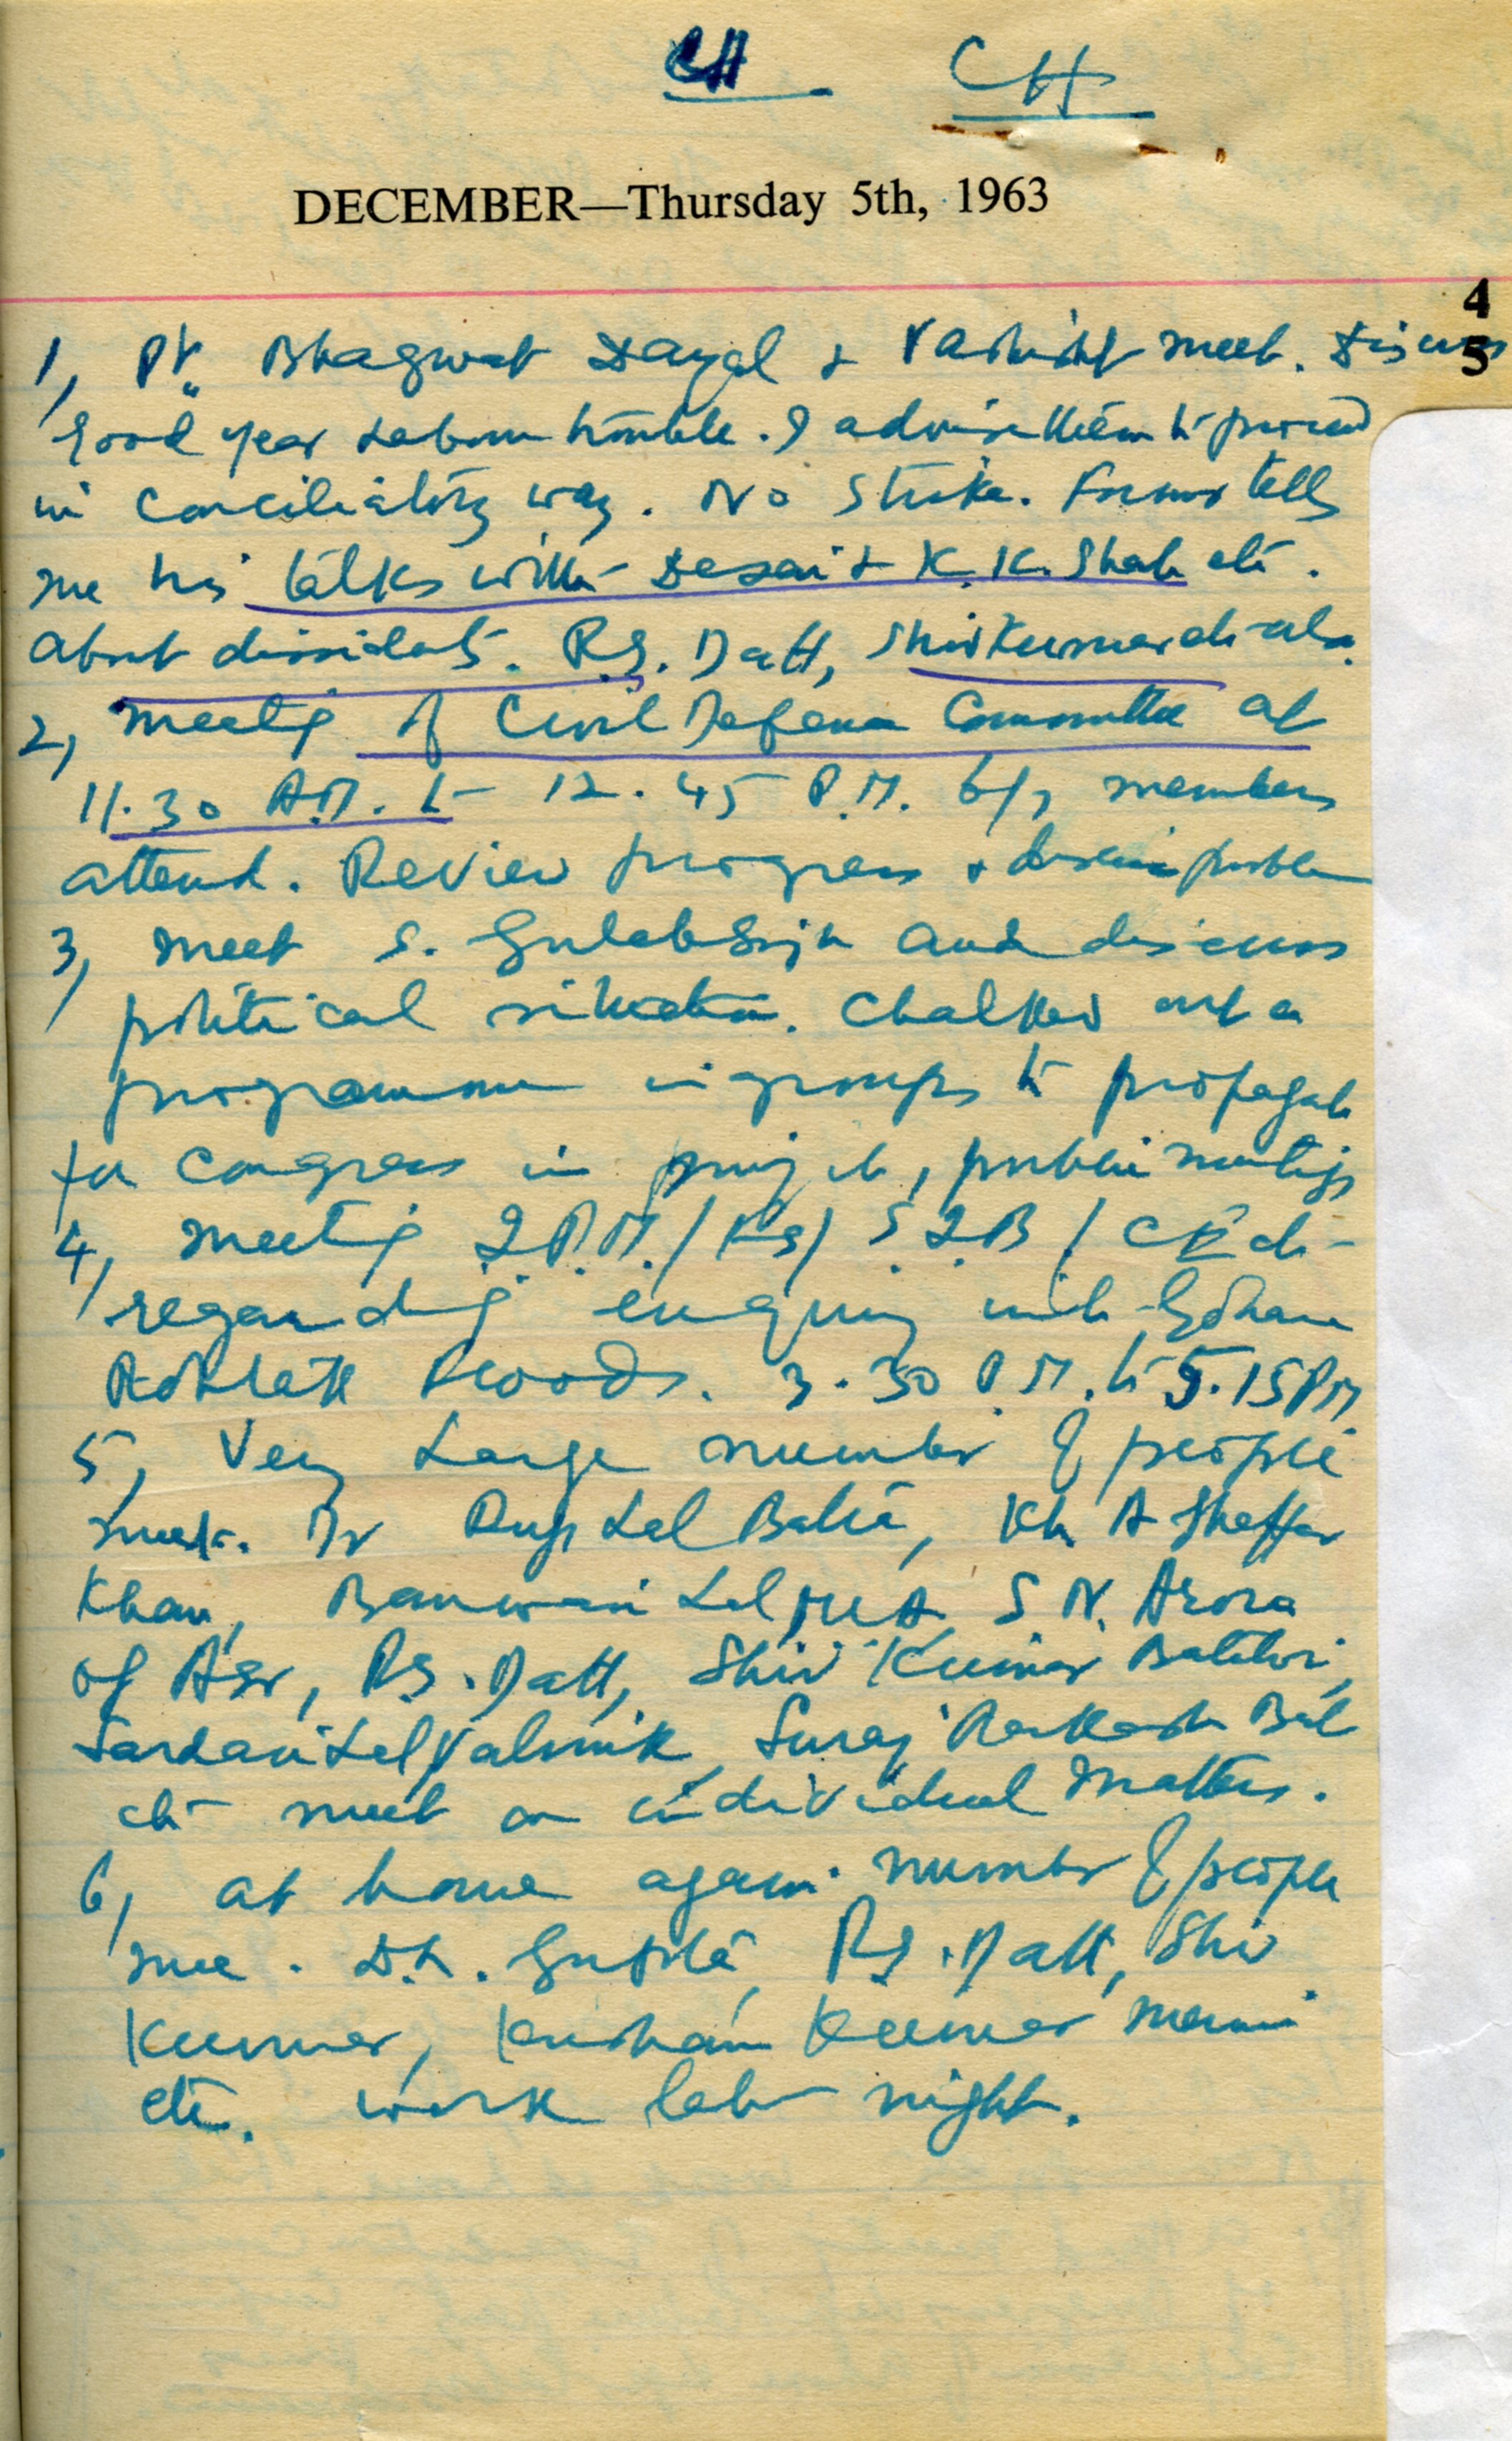 CH CH
DECEMBER—Thursday 5th, 1963
4
5
1, Pt. Bhagwat Dayal & Vashisht meet. Discuss
Good year Labour trouble. I advise them to proceed
in conciliatory way. No strike. Former tells
me his talks with Desai & K.K. Shah etc.
about dissidents. R.S. Datt, Shiv Kumar etc also.
2, Meeting of Civil Defence Committee at
11.30 A.M. to 12.45 P.M. members
attend. Review progress & discuss problem
3, Meet S. Gulab Singh and discuss
political situation. Chalked out a
programme in groups to propagate
for Congress in public meetings
4, Meeting I.P.M./ FS/ S.I.B / CE etc
regarding enquiry into Gohana
Rohtak Floods. 3.30 P.M. to 5.15 PM
5, Very Large number of people
meet. Dr Rup Lal Batra, Kh. A Ghaffar
Khan, Banwari Lal MLA, S N. Arora
of Asr, R.S. Datt, Shiv Kumar
Sardari Lal Valmik, Suraj Parkash Bal
etc meet on individual matters.
6, at home again number of people
me. D.D. Gupta, R.S. Datt, Shiv
Kumar, Krishan Kumar
etc. work late night.